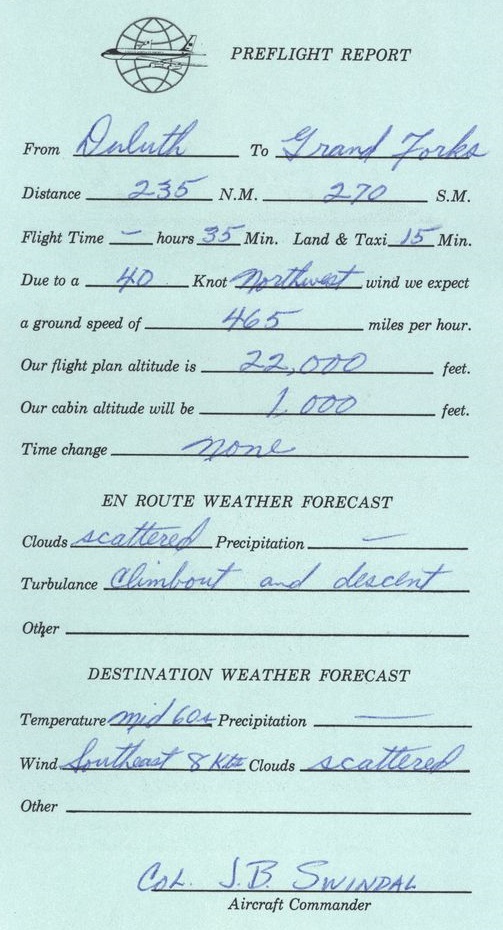 PREFLIGHT REPORT
From Duluth To Grand Forks
Distance 235 N.M. 270 S.M.
Flight Time — hours 35 Min. Land & Taxi 15 Min.
Due to a 40 Knot Northwest wind we expect
a ground speed of 465 miles per hour.
Our flight plan altitude is 22,000 feet.
Our cabin altitude will be 1,000 feet.
Time change none
EN ROUTE WEATHER FORECAST
Clouds scattered Precipitation —
Turbulance Climbout and descent
Other
DESTINATION WEATHER FORECAST
Temperature mid 60s Precipitation —
Wind Southeast 8 Kts Clouds scattered
Other
COL. J.B. SWINDAL
Aircraft Commander